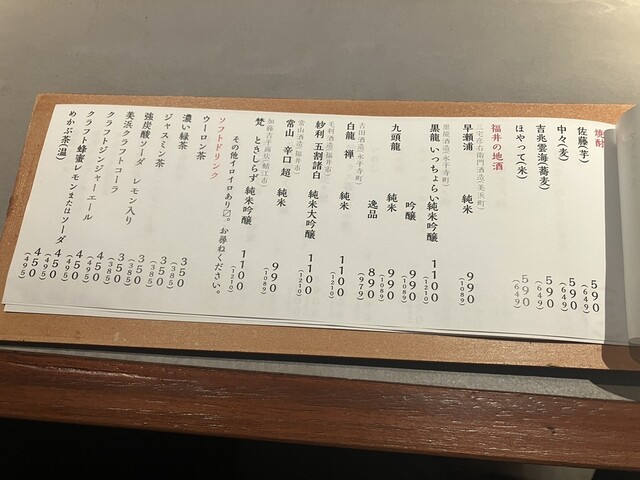 焼酎
佐藤(芋) 590 (649)
中々(麦) 590 (649)
吉兆雲海(蕎麦) 590 (649)
ほやって(米) 590 (649)
福井の地酒
三宅彦右衛門酒造(美浜町)
早瀬浦 純米 990 (1089)
黒龍酒造(永平寺町)
黒龍 いっちょらい 純米吟醸 1100 (1210)
吟醸 990 (1089)
九頭龍 純米 990 (1089)
逸品 890 (979)
吉田酒造(永平寺町)
白龍 禅 純米 1100 (1210)
毛利酒造(福井市)
紗利 五割諸白 純米大吟醸 1100 (1210)
常山酒造(福井市)
常山 辛口 超 純米 990 (1089)
加藤吉平商店(鯖江市)
梵 ときしらず 純米吟醸 1100 (1210)
その他イロイロあり〼。お尋ねください。
ソフトドリンク
ウーロン茶
濃い緑茶 350 (385)
ジャスミン茶 350 (385)
強炭酸ソーダ レモン入り 350 (385)
美浜クラフトコーラ 350 (385)
クラフトジンジャーエール 450 (495)
クラフト蜂蜜レモンまたはソーダ 450 (495)
めかぶ茶(温) 450 (495)